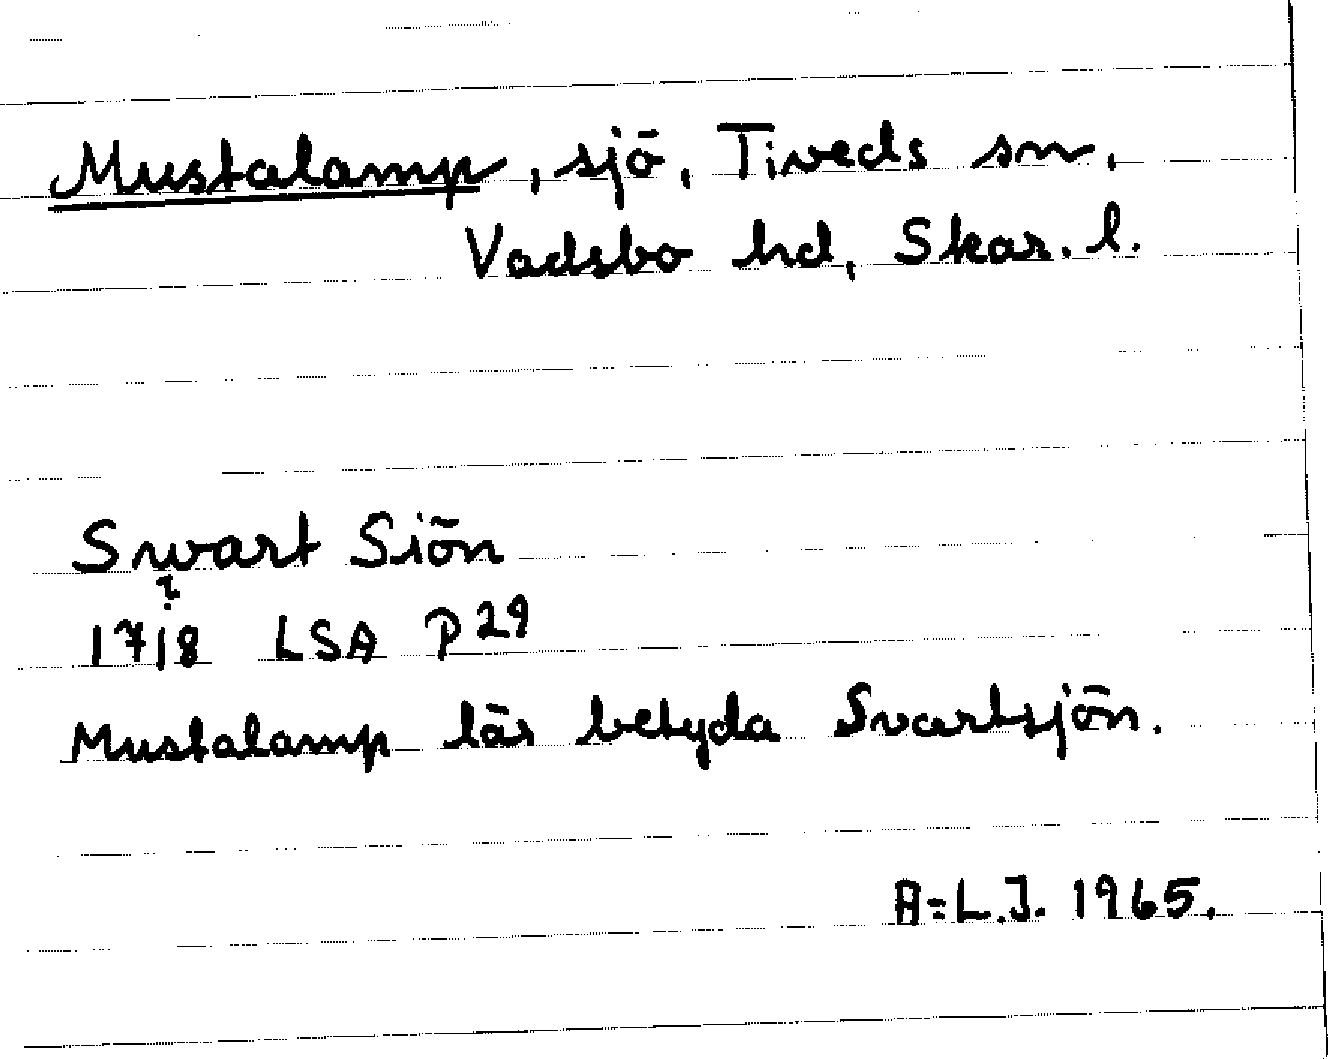 Mustalamp, sjö, Tiveds sn,
Vadsbo hd, Skar. l.
Swart Siön
?
1718 LSA P 29
Mustalamp lär betyda Svartsjön.
A-L.J. 1965.